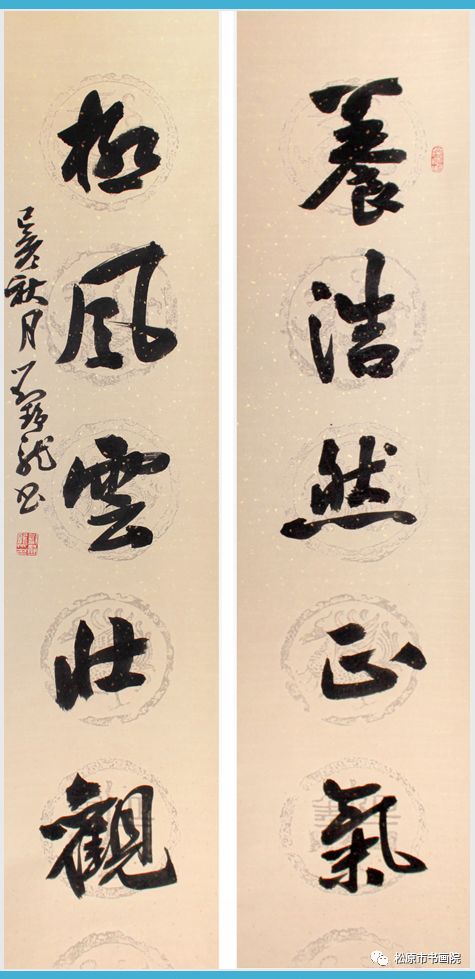 養浩然正氣
極風雲壯觀
己亥秋月
龙书
松原市书画院